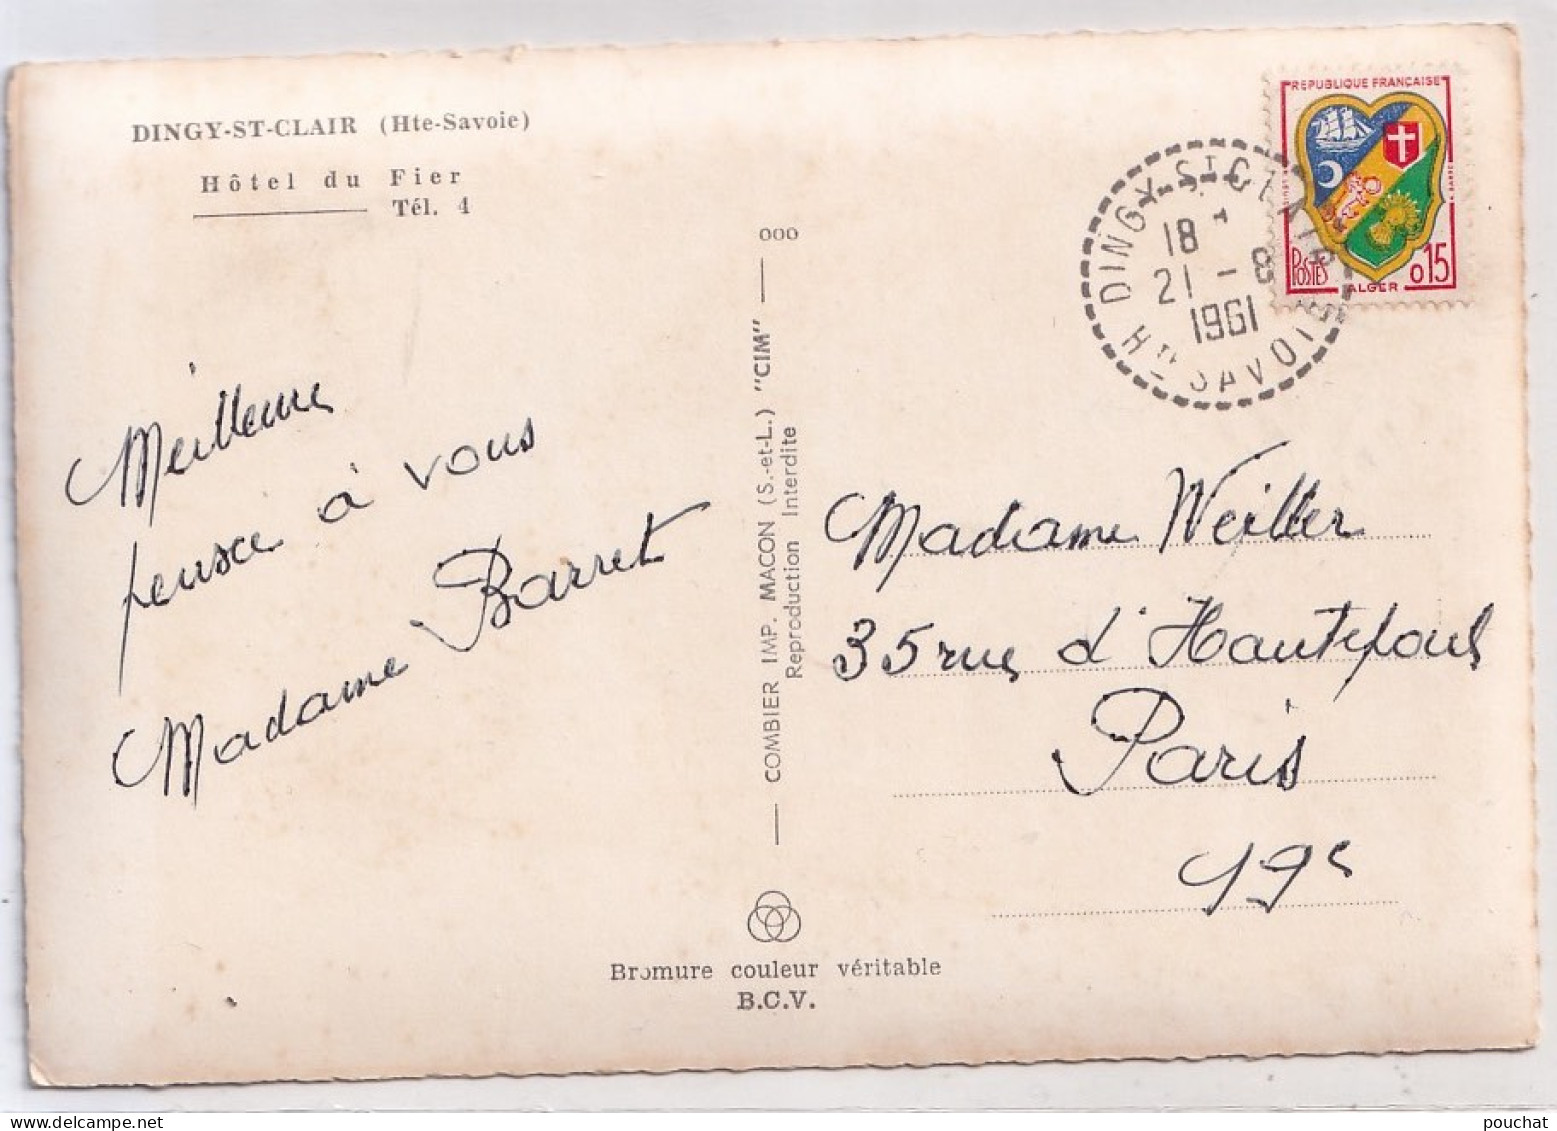 DINGY-ST-CLAIR (Hte-Savoie)
Hôtel du Fier
Tél. 4
Meilleure
pensée à vous
Madame Barret
000
COMBIER IMP. MACON (S.-et-L.) "CIM"
Reproduction Interdite
Bromure couleur véritable
B.C.V.
REPUBLIQUE FRANÇAISE
POSTES
ALGER
0,15
DINGY-ST CLAIR
18 H
21 - 8
1961
HTE SAVOIE
Madame Weiller
35 rue d'Hautpoul
Paris
19e
pouchat